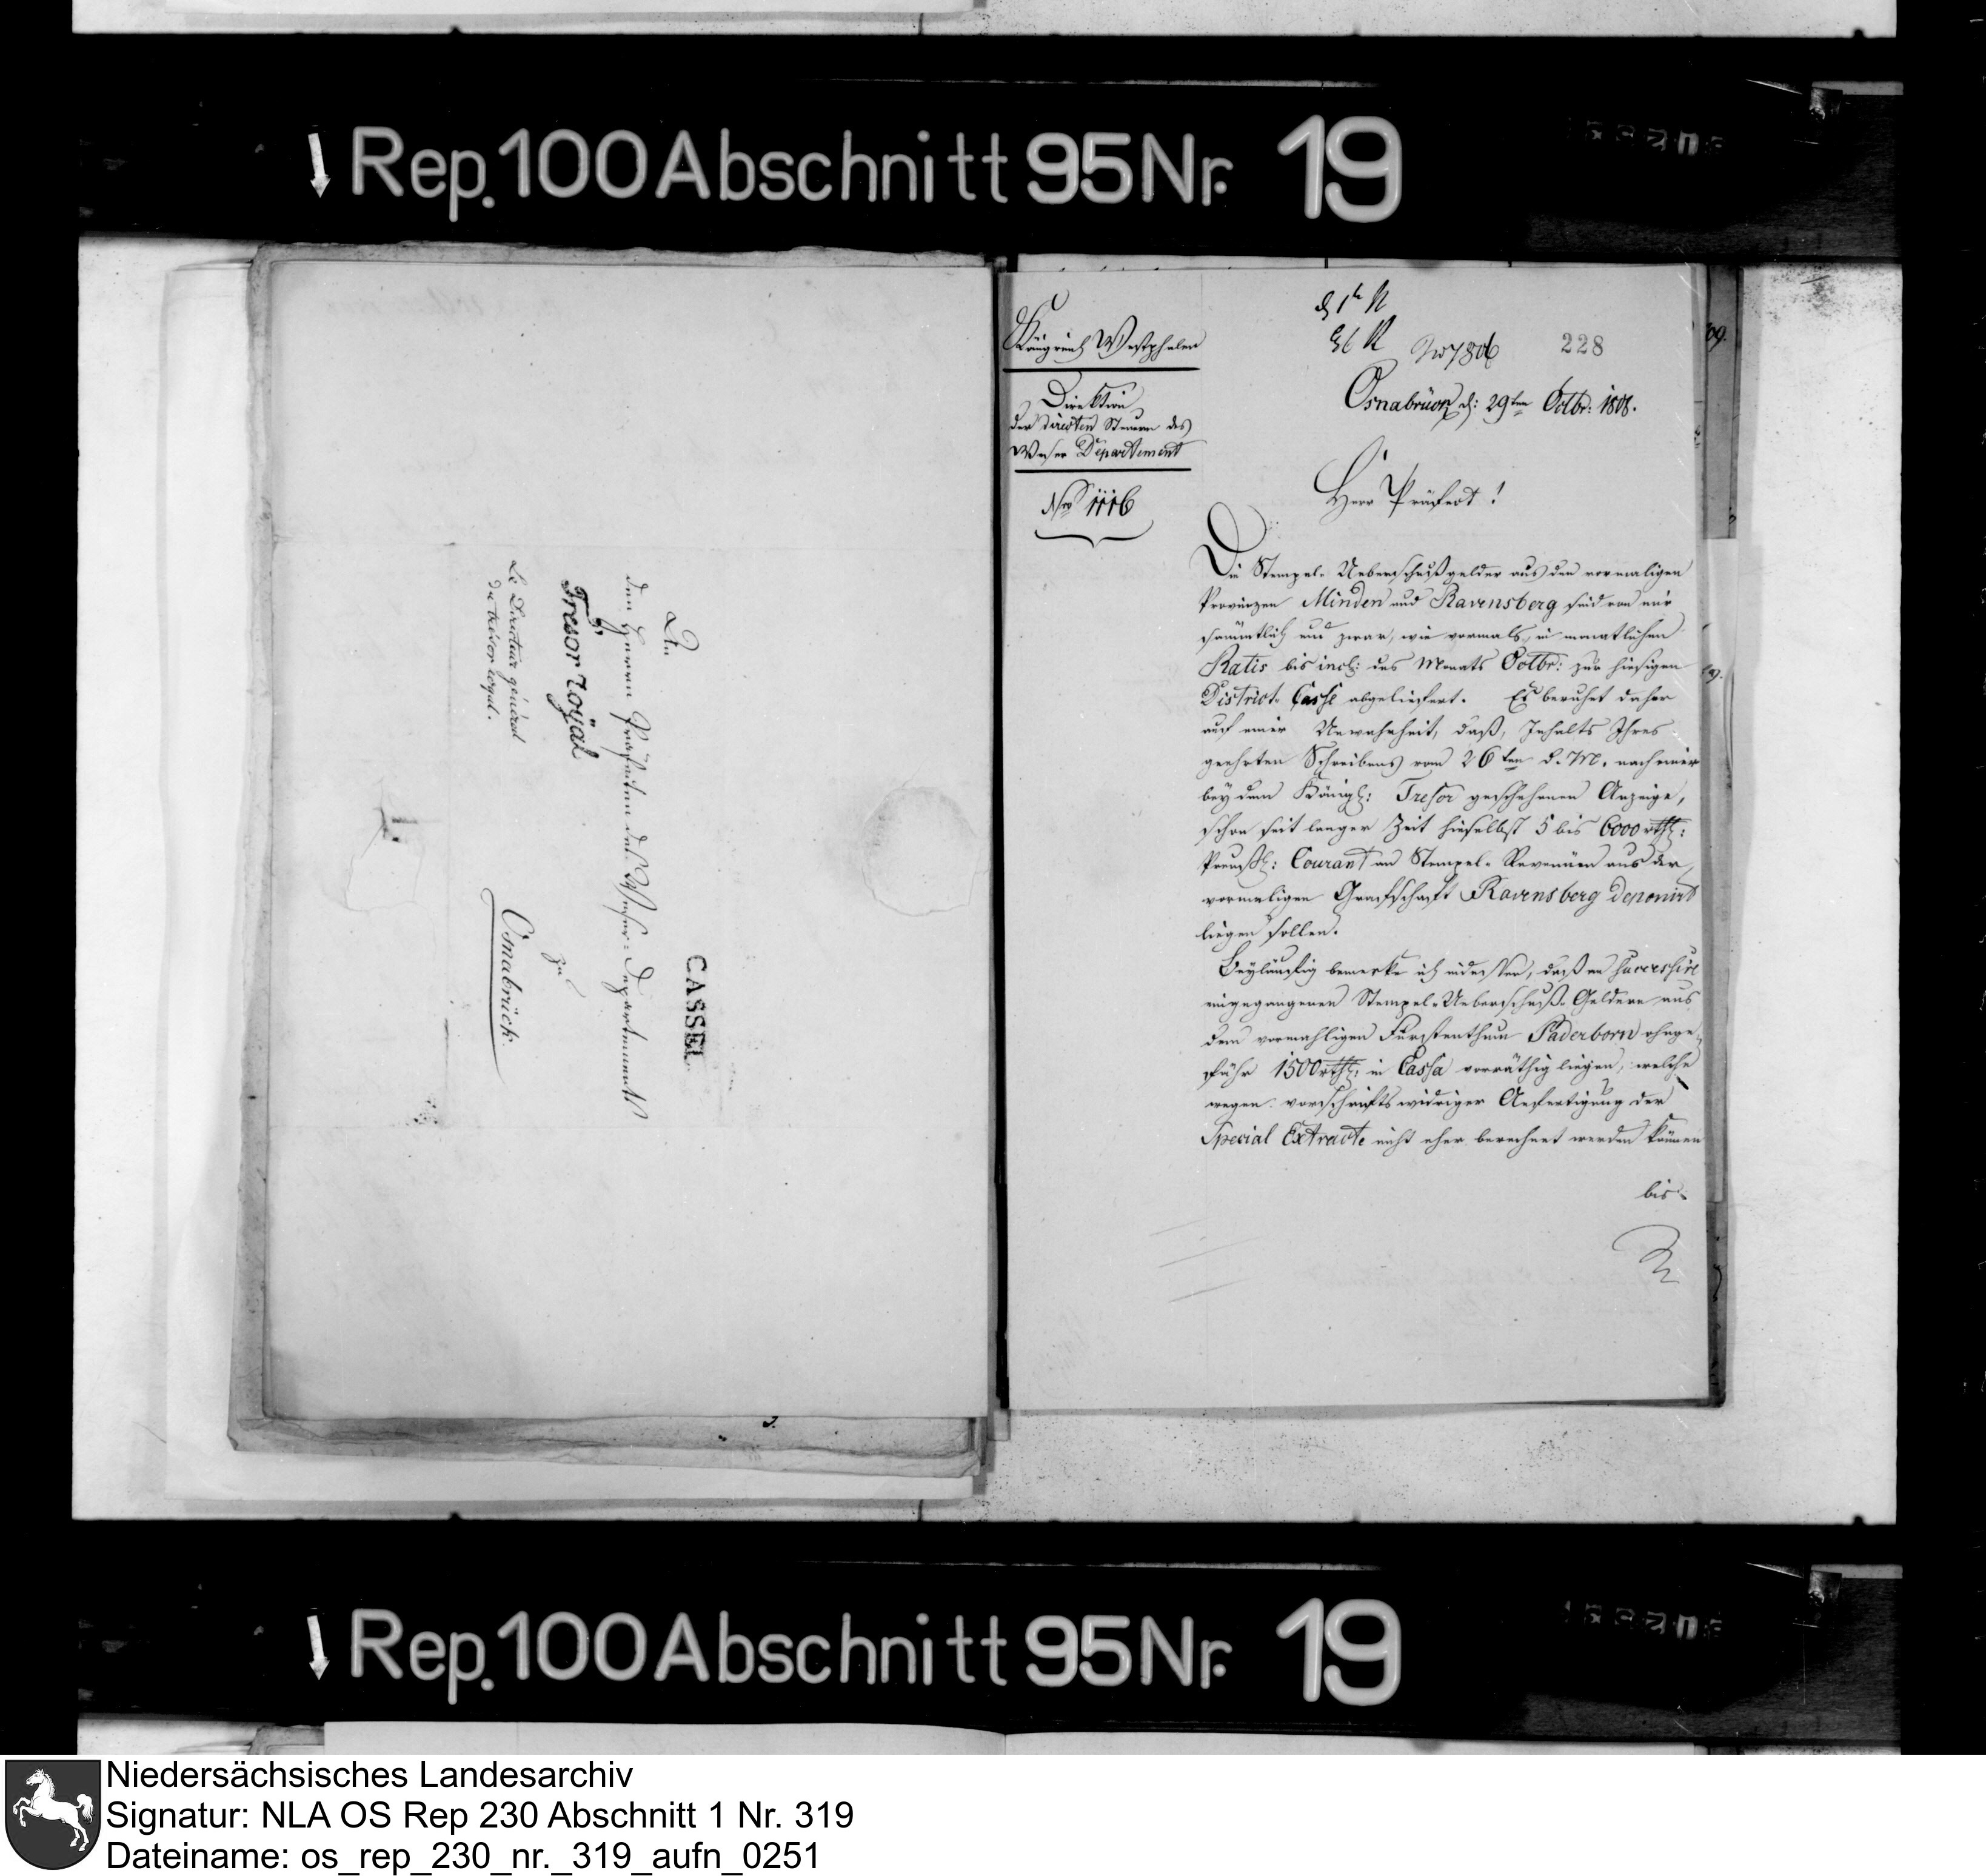 Rep. 100 Abschnitt 95 Nr. 19
An
den Herrn Präfecten des Weser-Departements
Tresor royal
zu
Osnabrück.
Le Directeur général
du trésor royal.
CASSEL
Königreich Westphalen
Direktion
der directen Steuern des
Weser Departement
Nro 1116
228
Osnabrück d: 29ten Octbr: 1808.
Herr Präfect!
Die Stempel-Ueberschußgelder aus den vormaligen
Provinzen Minden und Ravensberg sind von mir
sämmtlich und zwar, wie vormals, in monatlichen
Ratis bis incl: des Monats Octbr: zur hiesigen
District-Casse abgeliefert. Es beruhet daher
auf einer Unwahrheit, daß, Inhalts Ihres
geehrten Schreibens vom 26ten d. M. nach einer
bey dem Königl: Tresor geschehenen Anzeige,
schon seit langer Zeit hieselbst 5 bis 6000 rthl:
Preußl: Courant an Stempel-Revenüen aus der
vormaligen Grafschaft Ravensberg deponirt
liegen sollen.
Beyläufig bemerke ich indessen, daß an successive
eingegangenen Stempel-Ueberschuß-Geldern aus
dem vormahligen Fürstenthum Paderborn ohnge-
fähr 1500 rthl: in Cassa vorräthig liegen, welche
wegen vorschriftswidriger Anfertigung der
Special Extracte nicht eher berechnet werden können
bis
Rep. 100 Abschnitt 95 Nr. 19
Niedersächsisches Landesarchiv
Signatur: NLA OS Rep 230 Abschnitt 1 Nr. 319
Dateiname: os_rep_230_nr._319_aufn_0251